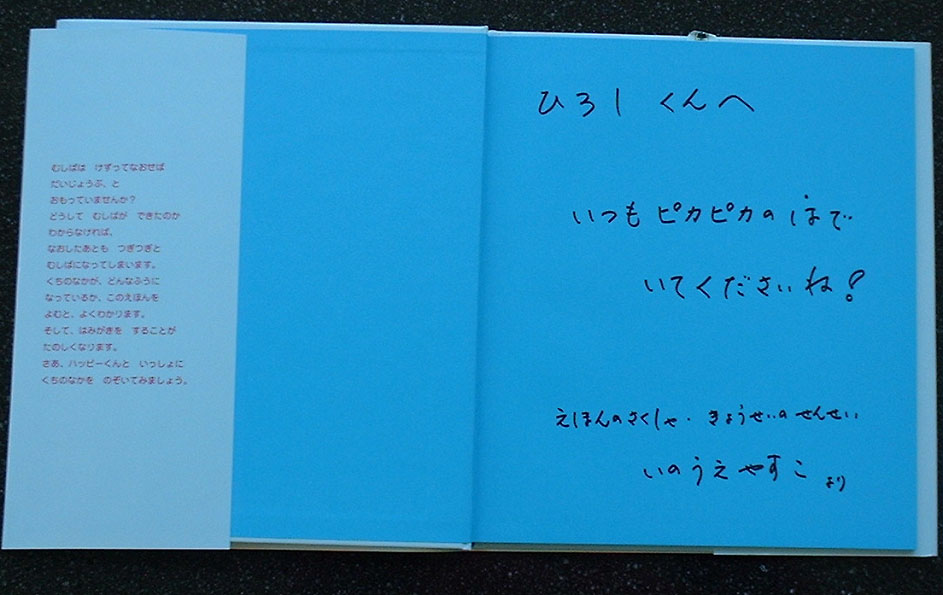 むしばは　けずってなおせば
だいじょうぶ、と
おもっていませんか？
どうして　むしばが　できたのか
わからなければ、
なおしたあとも　つぎつぎと
むしばになってしまいます。
くちのなかが、どんなふうに
なっているか、このえほんを
よむと、よくわかります。
そして、はみがきを　することが
たのしくなります。
さあ、ハッピーくんと　いっしょに
くちのなかを　のぞいてみましょう。
ひろし くんへ
いつも ピカピカの はで
いてくださいね！
えほんのさくしゃ・きょうせいの せんせい
いのうえ やすこ より